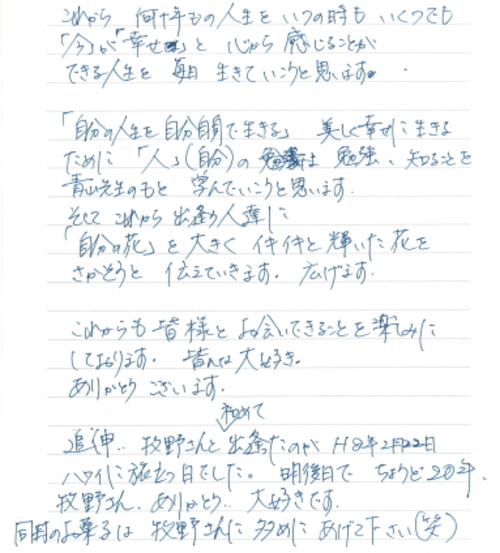 これから 何十年もの人生を いつの時も いくつでも
「今」が「幸せ」と 心から 感じることが
できる人生を 毎日 生きていこうと思います。
「自分の人生を自分自身で生きる」 美しく幸せに生きる
ために 「人」(自分)の 勉強、知ることを
青山先生のもと 学んでいこうと思います.
そして これから 出逢う人達に
「自分の花」を 大きく イキイキと 輝いた花を
さかそうと 伝えていきます. 広げます.
これからも 皆様と お会いできることを 楽しみに
しております. 皆んな 大好き。
ありがとう ございます.
初めて
追伸.. 牧野さんと 出逢ったのが H8年2月22日
ハワイに 旅立つ日でした。 明後日で ちょうど20年.
牧野さん. ありがとう.. 大好きです.
同封のお菓子は 牧野さんに 多めに あげて下さい(笑)